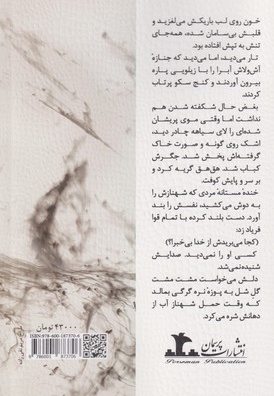 خون روی لب باریکش می‌لغزید و
قلبش بی‌سامان شده، همه‌جای
تنش به تپش افتاده بود.
تار می‌دید، اما می‌دید که جنازهٔ
آش‌ولاش آبرا را با زیلویی پاره
بیرون آوردند و کنج سکو پرتاب
کردند.
بغض حال شکفته شدن هم
نداشت اما وقتی موی پریشان
دامهای را لای سیاهه چادر دید،
اشک روی گونه و صورت خاک
گرفته‌اش پخش شد. جگرش
کباب شد. هق‌هق گریه کرد و
بر سر و پایش کوفت.
خندهٔ مستانهٔ مردی که شهنازش را
به دوش می‌کشید، نفسش را بند
آورد. دست بلند کرده با تمام قوا
فریاد زد:
(کجا می‌بریدش از خدا بی‌خبرا؟)
کسی او را نمی‌دید. صدایش
شنیده نمی‌شد.
دلش می‌خواست مشت مشت
گل شل به پوزهٔ نره گرگی بمالد
که وقت حمل شهناز آب از
دهانش شره می‌کرد.
۴۳۰۰۰ تومان
ISBN: 978-600-187370-6
9 786001 873706
انتشارات پرسمان
Porseman Publication